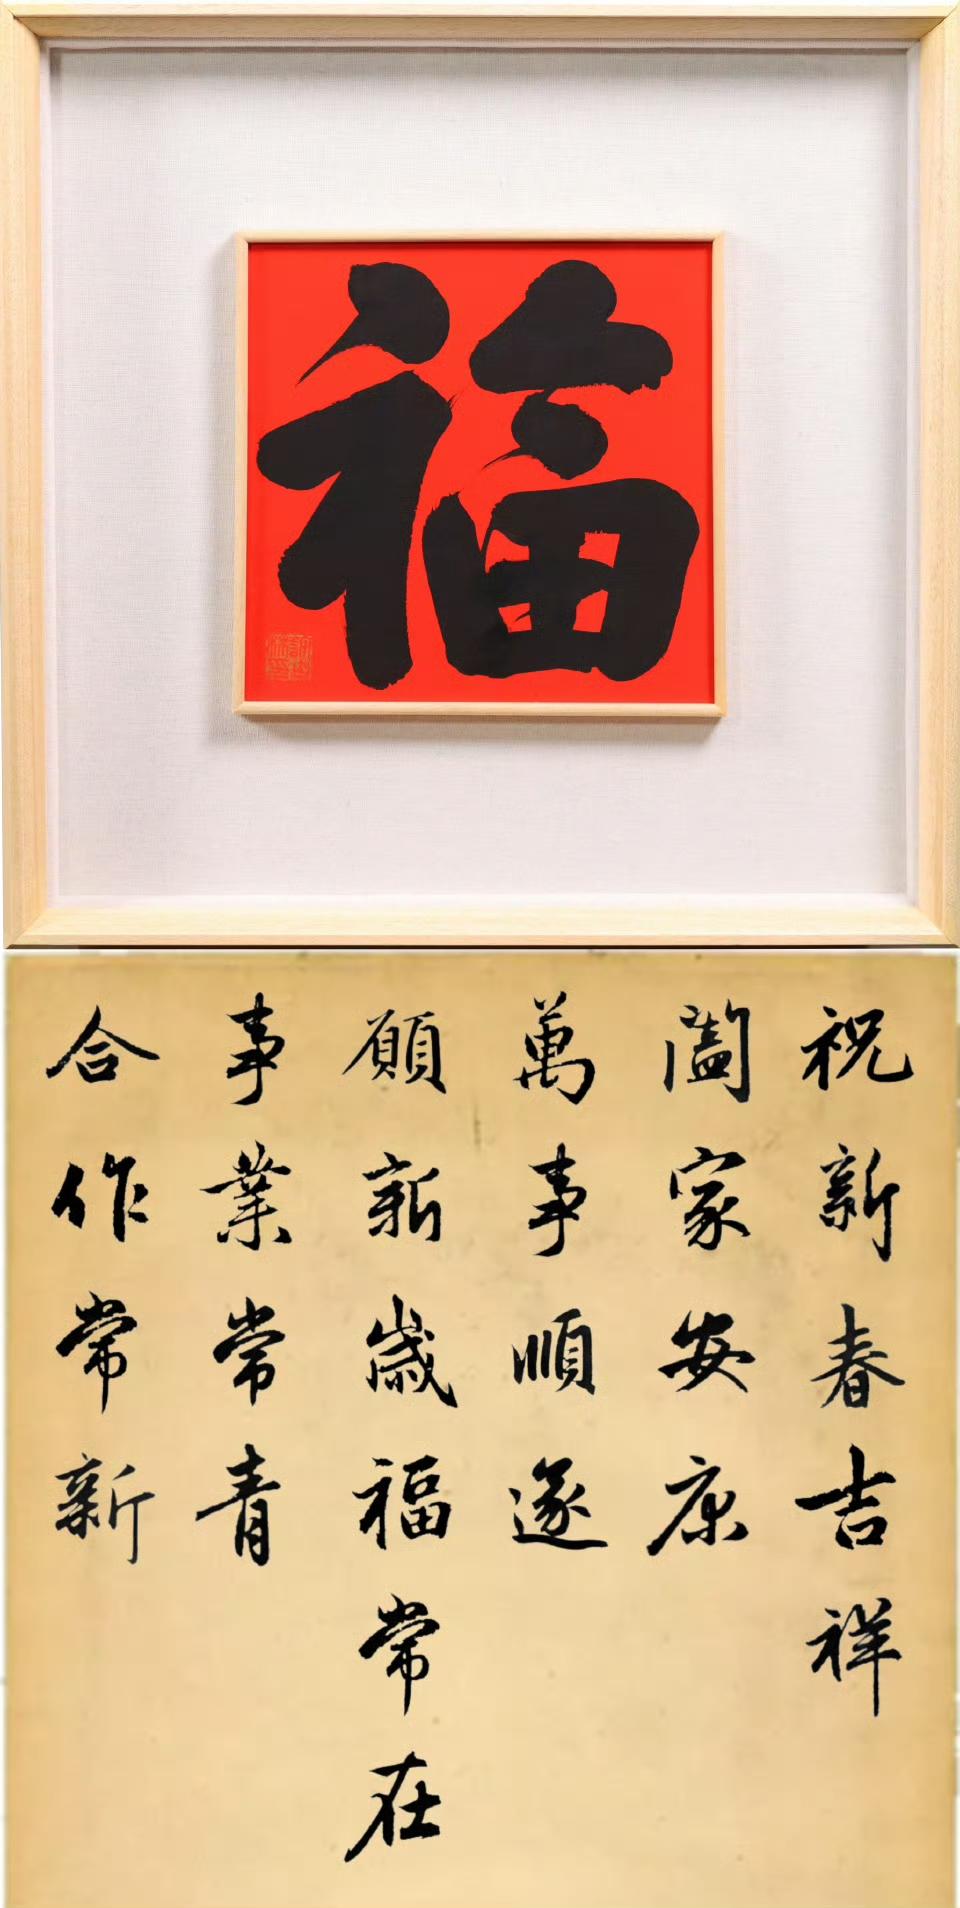 福
祝新春吉祥
闔家安康
萬事順遂
願新歲福常在
事業常青
合作常新